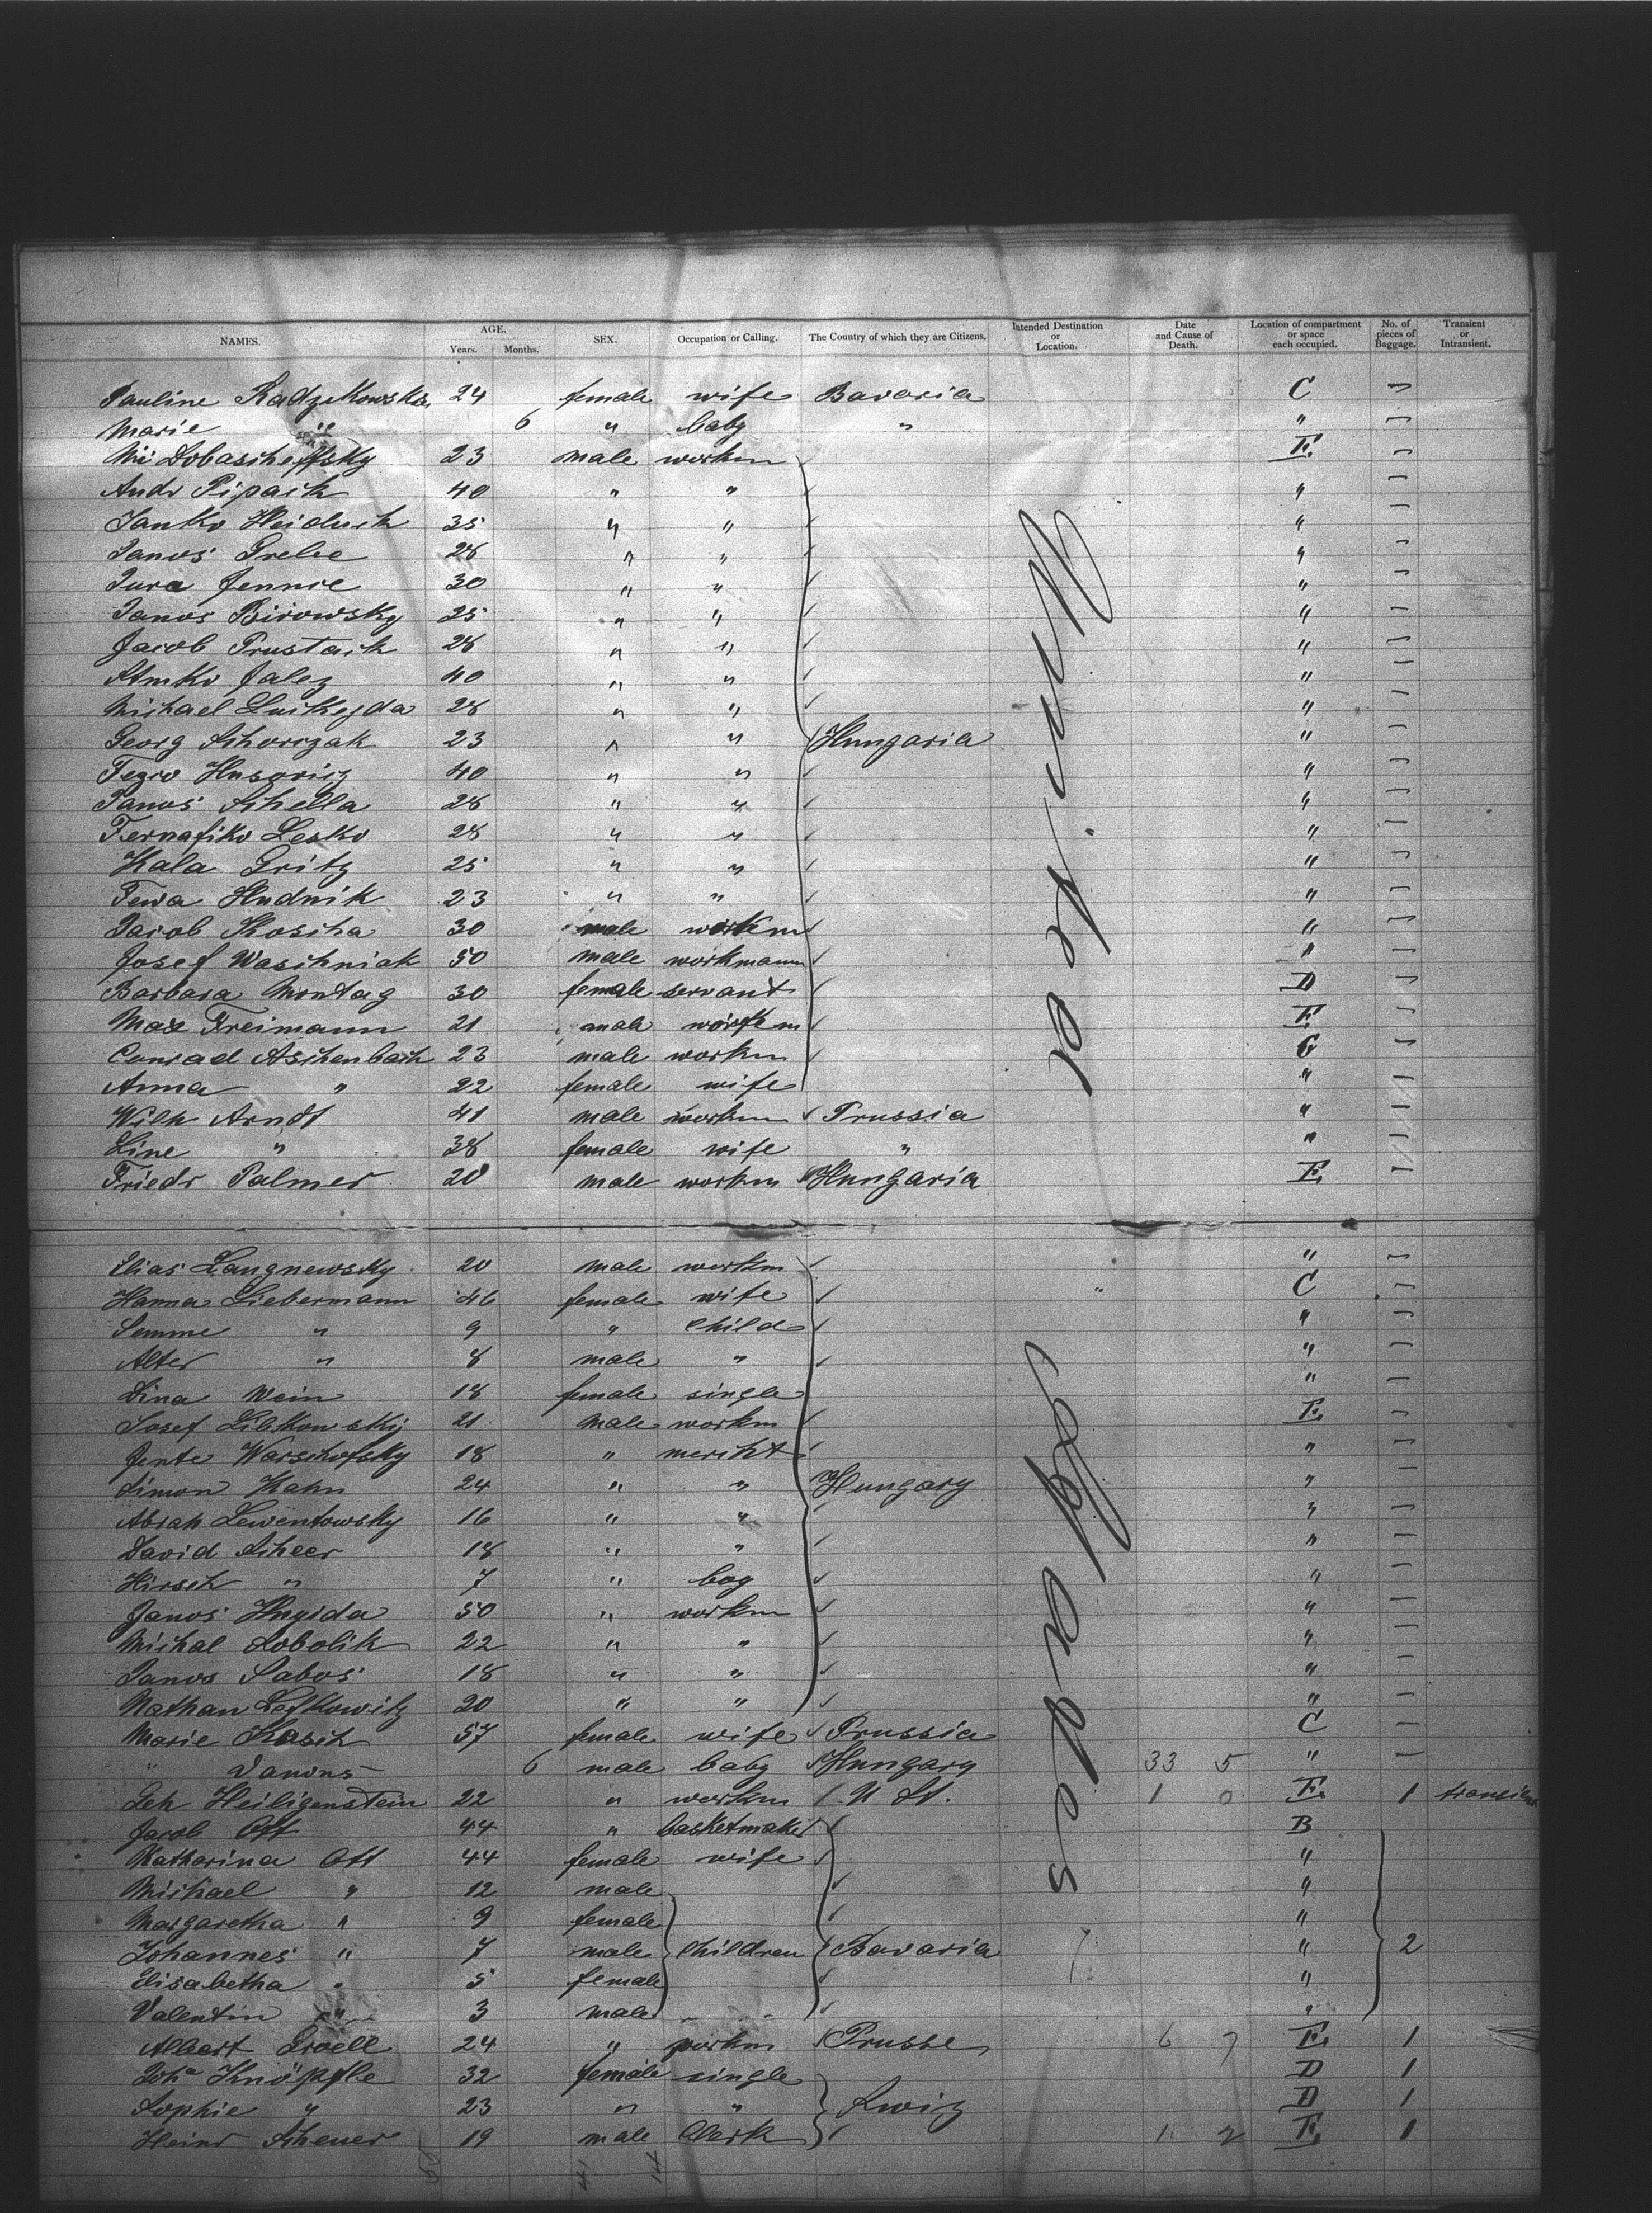 NAMES. AGE. Years. Months. SEX. Occupation or Calling. The Country of which they are Citizens. Intended Destination or Location. Date and Cause of Death. Location of compartment or space each occupied. No. of pieces of Baggage. Transient or Intransient.
Pauline Radzekowska 24 female wife Bavaria C
Marie " 6 " baby " "
Dobascheffsky 23 male workm E
Andr Pipach 40 " " "
Janko Heiduch 35 " " "
Janos Grebe 28 " " "
Jura Jennie 30 " " "
Janos Birowsky 25 " " "
Jacob Prustach 28 " " "
40 " " "
Michael 28 " " "
Georg Schorczak 23 " " Hungaria "
40 " " "
Janos Schella 28 " " "
Lesko 28 " " "
Kala Gritz 25 " " "
Fewa Hudnik 23 " " "
Jacob Koscha 30 male workm "
Josef Waschniak 50 male workmann "
Barbara Montag 30 female servant D
Max Freimann 21 male workm E
Conrad Aschenbach 23 male workm C
Anna " 22 female wife "
Wilh Arndt 41 male workm Prussia "
Line " 38 female wife " "
Friedr Palmer 20 male workm Hungaria E
United
Elias Langnewsky 20 male workm "
Hanna Liebermann 46 female wife " C
Semme " 9 " child "
Alter " 8 male " "
Lina Wein 18 female single "
Josef Libkowskij 21 male workm E
Jente Warschofsky 18 " mercht "
Simon Kahn 24 " " Hungary "
Abrah Lewentowsky 16 " " "
David Scheer 18 " " "
Hirsch " 7 " boy "
Janos Huzida 50 " workm "
Michal Sobolik 22 " " "
Janos Sabos 18 " " "
Nathan Lefkowitz 20 " " "
Marie Kasch 57 female wife Prussia C
" Janons 6 male baby Hungary 33 5 "
Leh Heiligenstein 22 " workm U St. 1 0 E 1 transient
Jacob Ott 44 " basketmaker B
Katharina Ott 44 female wife "
Michael " 12 male "
Margaretha " 9 female "
Johannes " 7 male children Bavaria " 2
Elisabetha " 5 female "
Valentin " 3 male "
Albert Groell 24 " workm Prusse 6 7 E 1
Joha Knöpfle 32 female single D 1
Sophie " 23 " " Swiz D 1
Heinr Scheuer 19 male Clerk 1 2 E 1
States
41 14